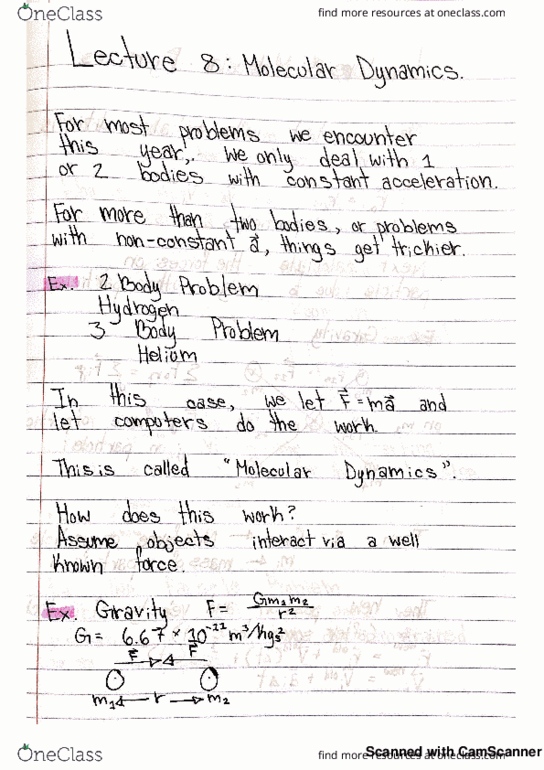 OneClass
find more resources at oneclass.com
Lecture 8: Molecular Dynamics.
For most problems we encounter
this year, we only deal with 1
or 2 bodies with constant acceleration.
For more than two bodies, or problems
with non-constant a⃗, things get trickier.
Ex. 2 Body Problem
Hydrogen
3 Body Problem
Helium
In this case, we let F⃗ = ma⃗ and
let computers do the work.
This is called "Molecular Dynamics".
How does this work?
Assume objects interact via a well
known force.
Ex. Gravity F = Gm₁m₂/r²
G = 6.67 × 10⁻¹¹ m³/kgs²
F⃗ F⃗
m₁ r m₂
OneClass
find more resources at oneclass.com
Scanned with CamScanner